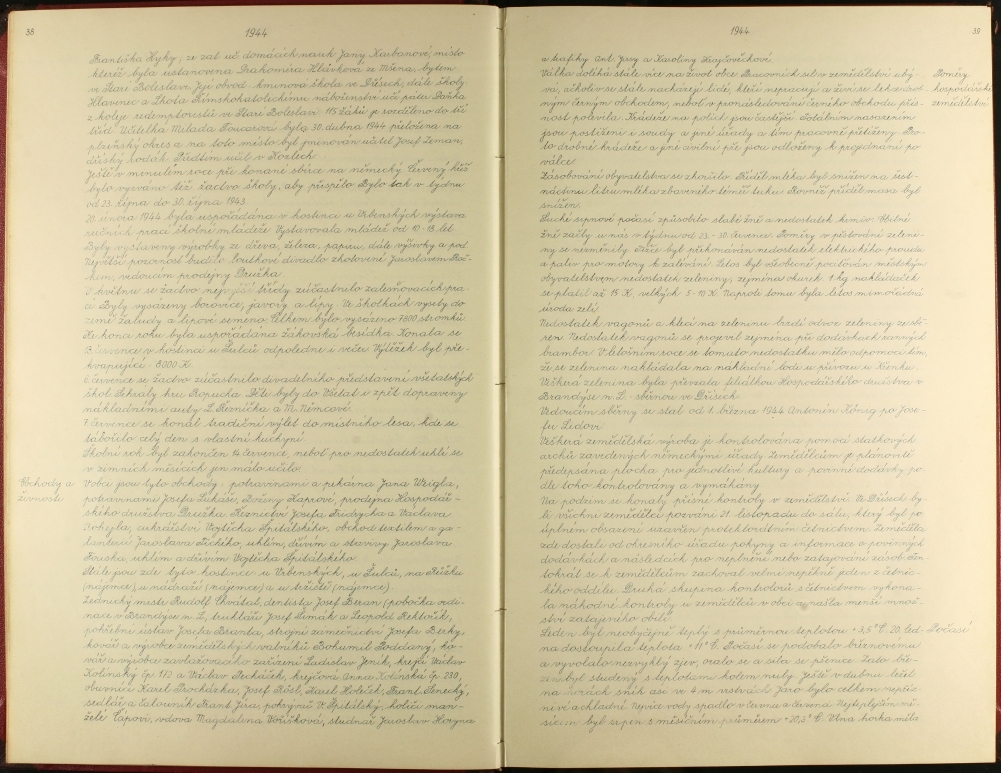 38
1944
Františka Hyky, ze zat uč domácích nauk Jany Karbanové, místo
kteréž byla ustanovena Drahomíra Hlávková ze Mšena, bytem
ve Staré Boleslavi. Její obvod: kmenová škola ve Dřísech, dále školy:
Hlavenec a Lhota. Římskokatolickému náboženství učí páter Dařka
z koleje redemptoristů ve Staré Boleslavi. 115 žáků je rozděleno do tří
tříd. Učitelka Milada Toucarová byla 30. dubna 1944 přeložena na
plzeňský okres a na toto místo byl jmenován učitel Josef Zeman,
dříský rodák. Předtím učil v Kozlech.
Ještě v minulém roce při konané sbírce na německý Červený kříž
bylo vyzváno též žactvo školy, aby přispělo. Bylo tak v týdnu
od 23. října do 30. října 1943.
20. února 1944 byla uspořádána v hostinci u Vrbenských výstava
ručních prací školní mládeže. Vystavovala mládež od 10-18 let.
Byly vystaveny výrobky ze dřeva, železa, papíru, dále výšivky a pod.
Největší pozornost budilo loutkové divadlo zhotovené Jaroslavem
kem, vedoucím prodejny Družka.
V květnu se žactvo nejvyšší třídy zúčastnilo zalesňovacích pra-
cí. Byly vysázeny borovice, javory a lípy. Ve školkách vysely do
země žaludy a lipové semeno. Celkem bylo vysázeno 7800 stromků.
Ke konci roku byla uspořádána žákovská besídka. Konala se
července v hostinci u Šulců odpoledne i večer. Výtěžek byl pře-
kvapující: 8000 K.
července se žactvo zúčastnilo divadelního představení všetatských
škol. Sehrály hru Ropucha. Děti byly do Všetat i zpět dopraveny
nákladními auty L. Řezníčka a M. Němcové.
7. července se konal tradiční výlet do místního lesa, kde se
tábořilo celý den s vlastní kuchyní.
Školní rok byl zakončen 14. července, neboť pro nedostatek uhlí se
v zimních měsících jen málo učilo.
Obchody a
živnosti
V obci jsou tyto obchody: potravinami a pekárna Jana Weigla,
potravinami Josefa Lukáše, Boženy Kaprové, prodejna Hospodář-
ského družstva Družka. Řeznictví Josefa Fridrycha a Václava
Pokejla, cukrářství Vojtěcha Špitálského, obchod textilem a ga-
lanterií Jaroslava Tichého, uhlím, dřívím a stavivy Jaroslava
Fouska, uhlím a dřívím Vojtěcha Špitálského.
Stále jsou zde tyto hostince: u Vrbenských, u Šulců, na Růžku
(nájemce), u nádraží (nájemce) a u tržiště (nájemce).
Zednický mistr Rudolf Chvátal, dentista Josef Beran (pobočka ordi-
nace v Brandýse n. L., truhláři Josef Šimák a Leopold Rektořík,
pohřební ústav Josefa Branta, strojní zámečnictví Josefa Berky,
kovář a výrobce zemědělských valníků Bohumil Poddaný, ko-
vář a výrobce zavlažovacího zařízení Ladislav Jeník, krejčí Václav
Kolínský čp. 173 a Václav Pecháček, krejčová Anna Kolínská čp. 230,
obuvníci Karel Procházka, Josef Rössl, Karel Holeček, Frant. Senecký,
sedlář a čalouník Frant. Jíra, pokrývač V. Špitálský, holiči man-
želé Čápovi, vdova Magdalena Voříšková, studnař Jaroslav Horyna
1944
39
a trafiky Ant. Jíry a Karolíny Krejčověchové.
Válka doléhá stále více na život obce. Pracovních sil v zemědělství ubý-
vá, ačkoliv se stále nacházejí lidé, kteří nepracují a živí se lehce
ným černým obchodem, neboť v pronásledování černého obchodu přís-
nost polevila. Krádeže na polích jsou častější. Totálním nasazením
jsou postiženi i soudy a jiné úřady a tím pracovně přetíženy. Pro-
to drobné krádeže a jiné civilní pře jsou odloženy k projednání po
válce.
Poměry
hospodářské a
zemědělství
Zásobování obyvatelstva se zhoršilo. Příděl mléka byl snížen na šest-
náctinu litru mléka zbaveného téměř tuku. Rovněž příděl masa byl
snížen.
Suché srpnové počasí způsobilo slabé žně a nedostatek krmiv. Obilné
žně začaly u nás v týdnu od 23.-30. července. Poměry v pěstování zeleni-
ny se nezměnily. Těžce byl překonáván nedostatek elektrického proudu
a paliv pro motory k zalévání. Letos byl všeobecně pociťován městským
obyvatelstvem nedostatek zeleniny, zejména okurek. 1 kg nakládaček
se platil až 15 K, velkých 5-10 K. Naproti tomu byla letos mimořádná
úroda zelí.
Nedostatek vagonů a klecí na zeleninu brzdí odvoz zeleniny ze sbě-
ren. Nedostatek vagonů se projevil zejména při dodávkách raných
brambor. V letošním roce se tomuto nedostatku mělo odpomoci tím,
že se zelenina nakládala na nákladní lodi u přívozu u Kenku.
Veškerá zelenina byla převzata filiálkou Hospodářského družstva v
Brandýse n. L. - sběrnou ve Dřísech.
Vedoucím sběrny se stal od 1. března 1944 Antonín König po Jose-
fu Ledovi.
Veškerá zemědělská výroba je kontrolována pomocí statkových
archů zavedených německými úřady. Zemědělcům je plánovitě
předepsána plocha pro jednotlivé kultury a povinné dodávky po-
dle toho kontrolovány a vymáhány.
Na podzim se konaly přísné kontroly v zemědělství. Ve Dřísech by-
li všichni zemědělci pozváni 21. listopadu do sálu, který byl po
úplném obsazení uzavřen protektorátním četnictvem. Zemědělci
zde dostali od okresního úřadu pokyny a informace o povinných
dodávkách a následcích pro neplnění nebo zatajování zásob. Ten-
tokrát se k zemědělcům zachoval velmi nepěkně jeden z četnic-
kého oddílu. Druhá skupina kontrolorů s četnictvem vykona-
la náhodné kontroly u zemědělců v obci a našla menší množ-
ství zatajeného obilí.
Leden byl neobyčejně teplý s průměrnou teplotou +3,5° C. 20. led-
na dostoupila teplota +11° C. Počasí se podobalo březnovému
a vyvolalo nezvyklý zjev, oralo se a sila se pšenice. Zato bře-
zen byl studený s teplotami kolem nuly. Ještě v dubnu ležel
na horách sníh asi ve 4 m vrstvách. Jaro bylo celkem nepříz-
nivé a chladné. Nejvíce vody spadlo v lavnu a června. Nejteplejším mě-
sícem byl srpen s měsíčním průměrem +20,3° C. Vlna horka měla
Počasí